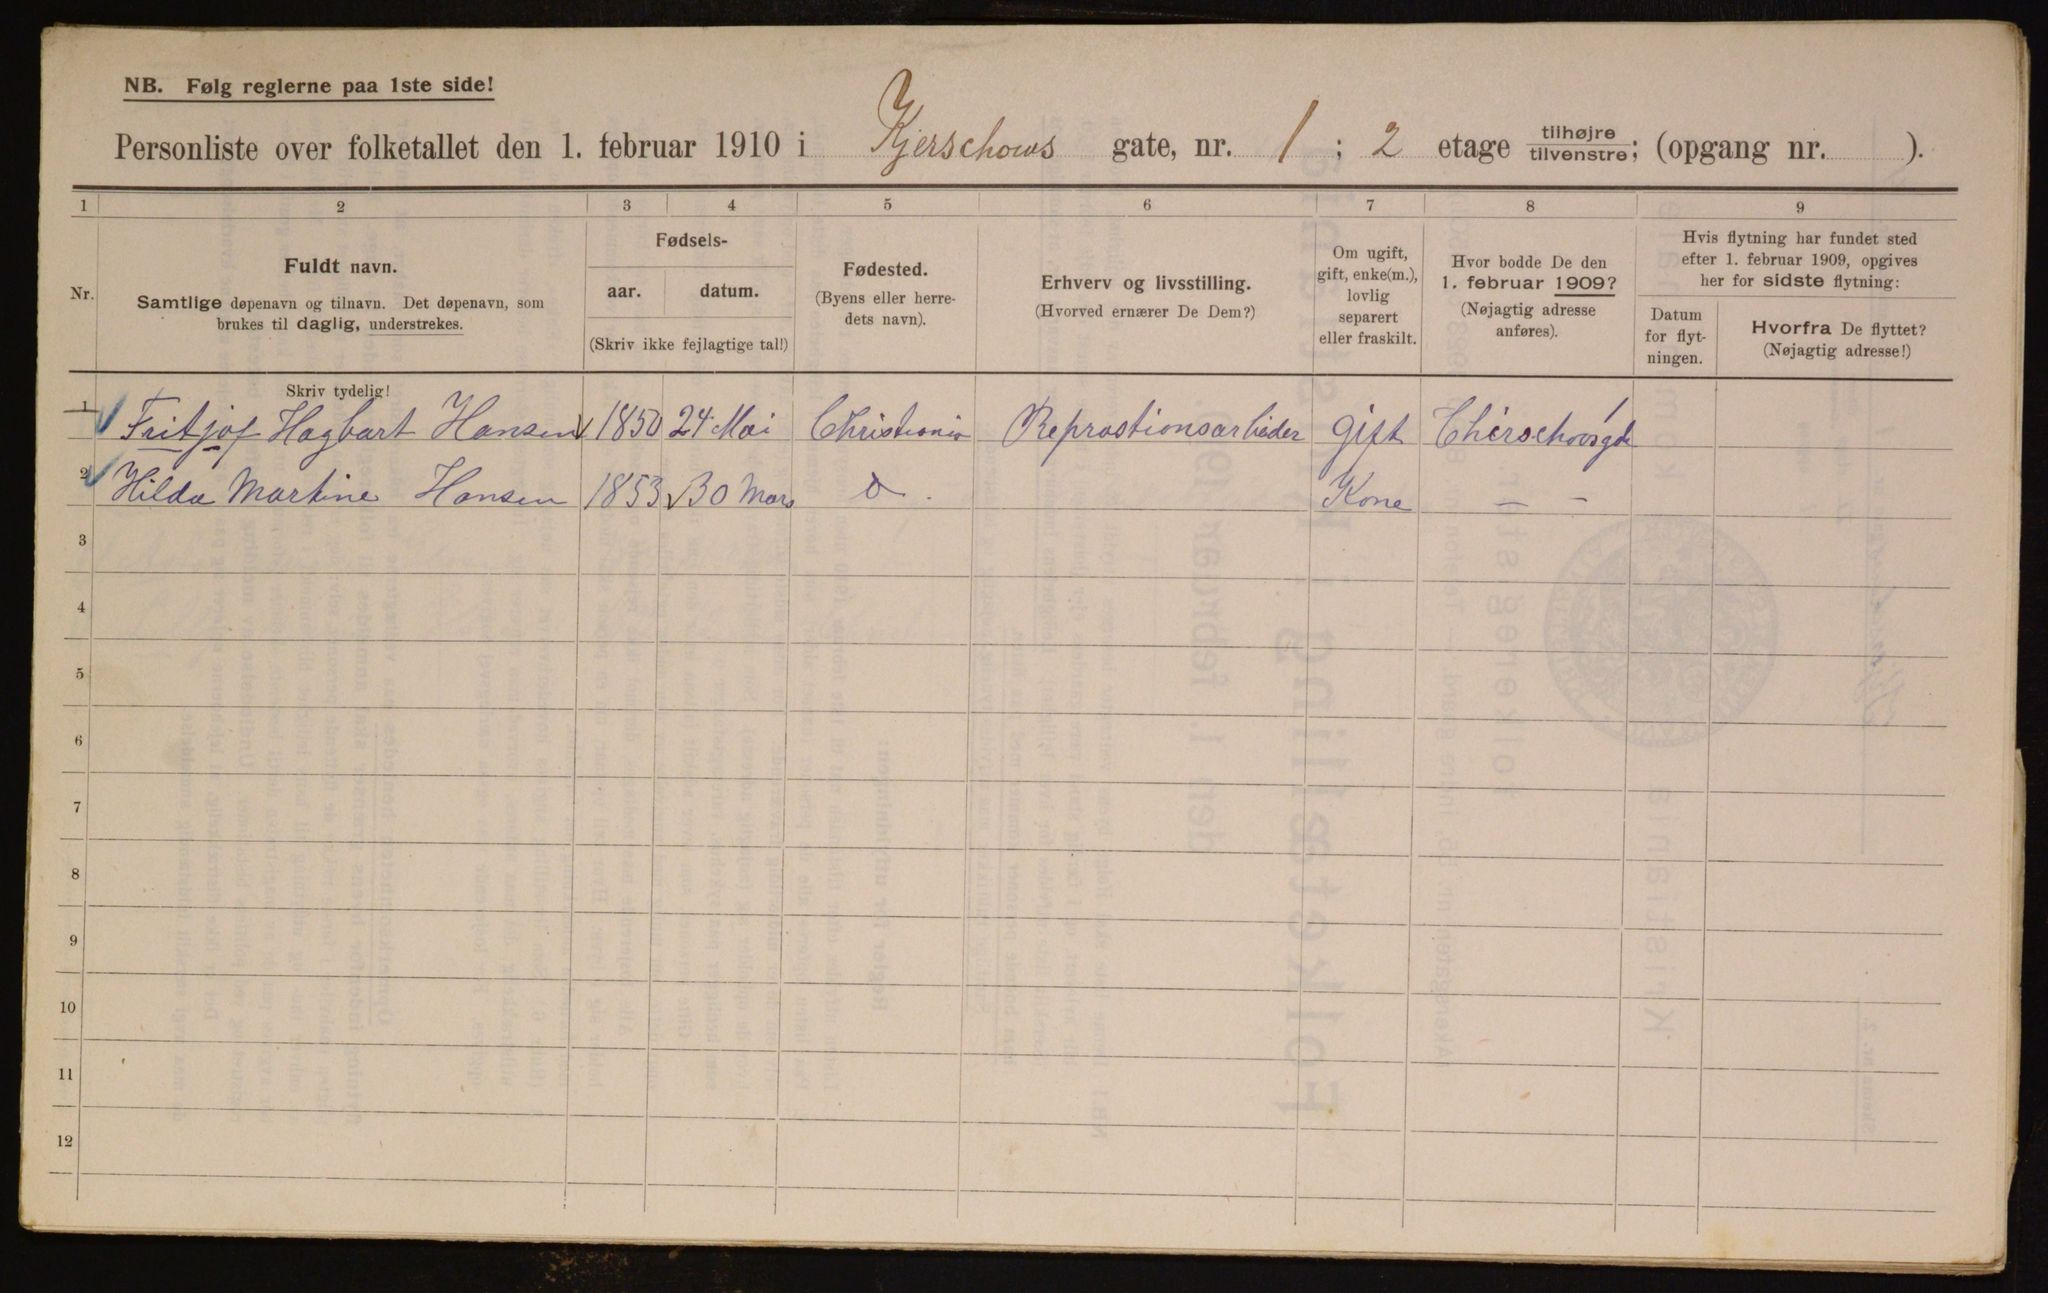 NB. Følg reglerne paa 1ste side!
Personliste over folketallet den 1. februar 1910 i Kjerschows gate, nr. 1; 2 etage tilhøjre/tilvenstre; (opgang nr. ).
1 2 3 4 5 6 7 8 9
Nr.
Fuldt navn.
Samtlige døpenavn og tilnavn. Det døpenavn, som
brukes til daglig, understrekes.
Fødsels-
aar. datum.
(Skriv ikke fejlagtige tal!)
Fødested.
(Byens eller herre-
dets navn).
Erhverv og livsstilling.
(Hvorved ernærer De Dem?)
Om ugift,
gift, enke(m.),
lovlig
separert
eller fraskilt.
Hvor bodde De den
1. februar 1909?
(Nøjagtig adresse
anføres).
Hvis flytning har fundet sted
efter 1. februar 1909, opgives
her for sidste flytning:
Datum
for flyt-
ningen.
Hvorfra De flyttet?
(Nøjagtig adresse!)
Skriv tydelig!
1 Fritjof Hagbart Hansen 1850 24 Mai Christiania Reprastionsarbeider gift Chierschovsgd 1
2 Hilda Martine Hansen 1853 30 Mars do. Kone — —
3
4
5
6
7
8
9
10
11
12